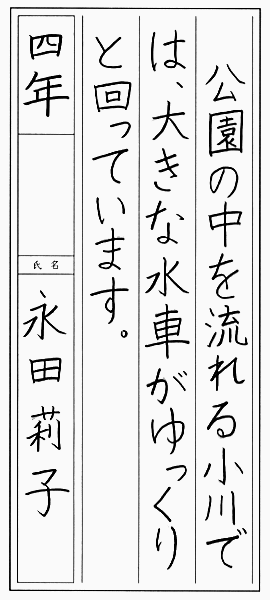 公園の中を流れる小川で
は、大きな水車がゆっくり
と回っています。
四年
氏名
永田莉子